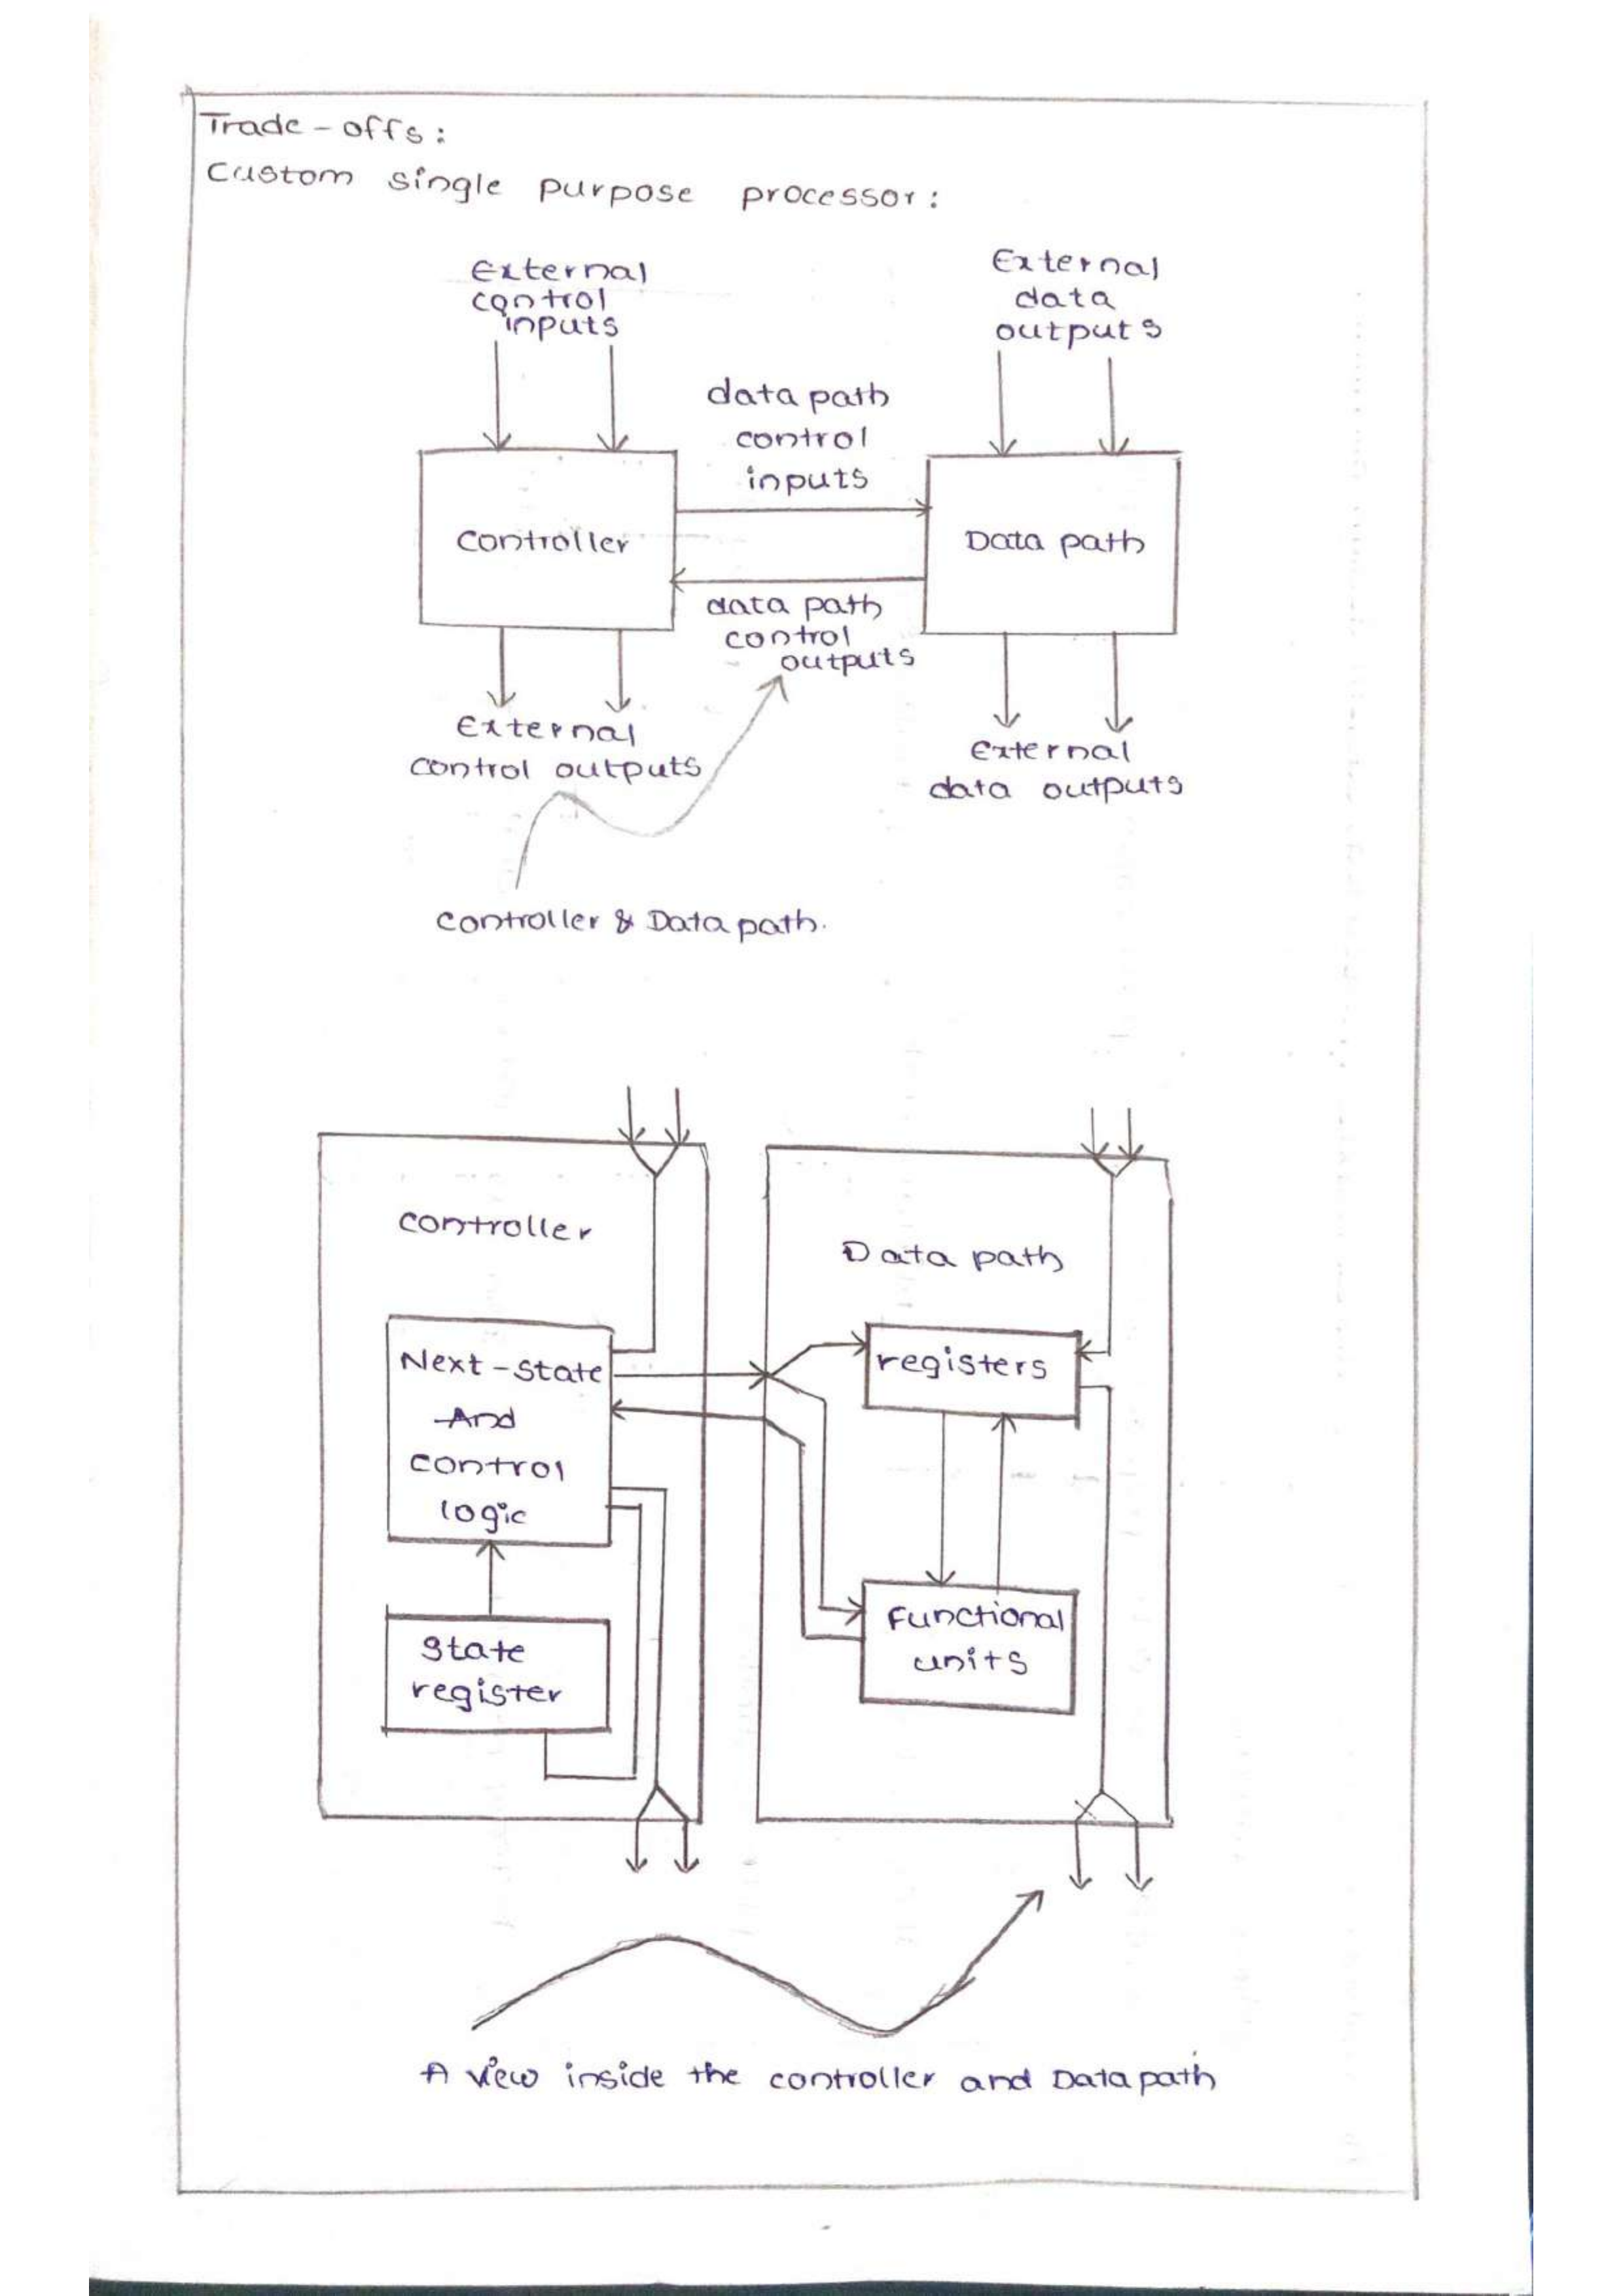 Trade-offs:
Custom single purpose processor:
External
control
inputs
External
data
outputs
data path
control
inputs
Controller
Data path
data path
control
outputs
External
control outputs
External
data outputs
Controller & Data path.
Controller
Data path
Next-State
And
control
logic
registers
State
register
Functional
units
A view inside the controller and Data path